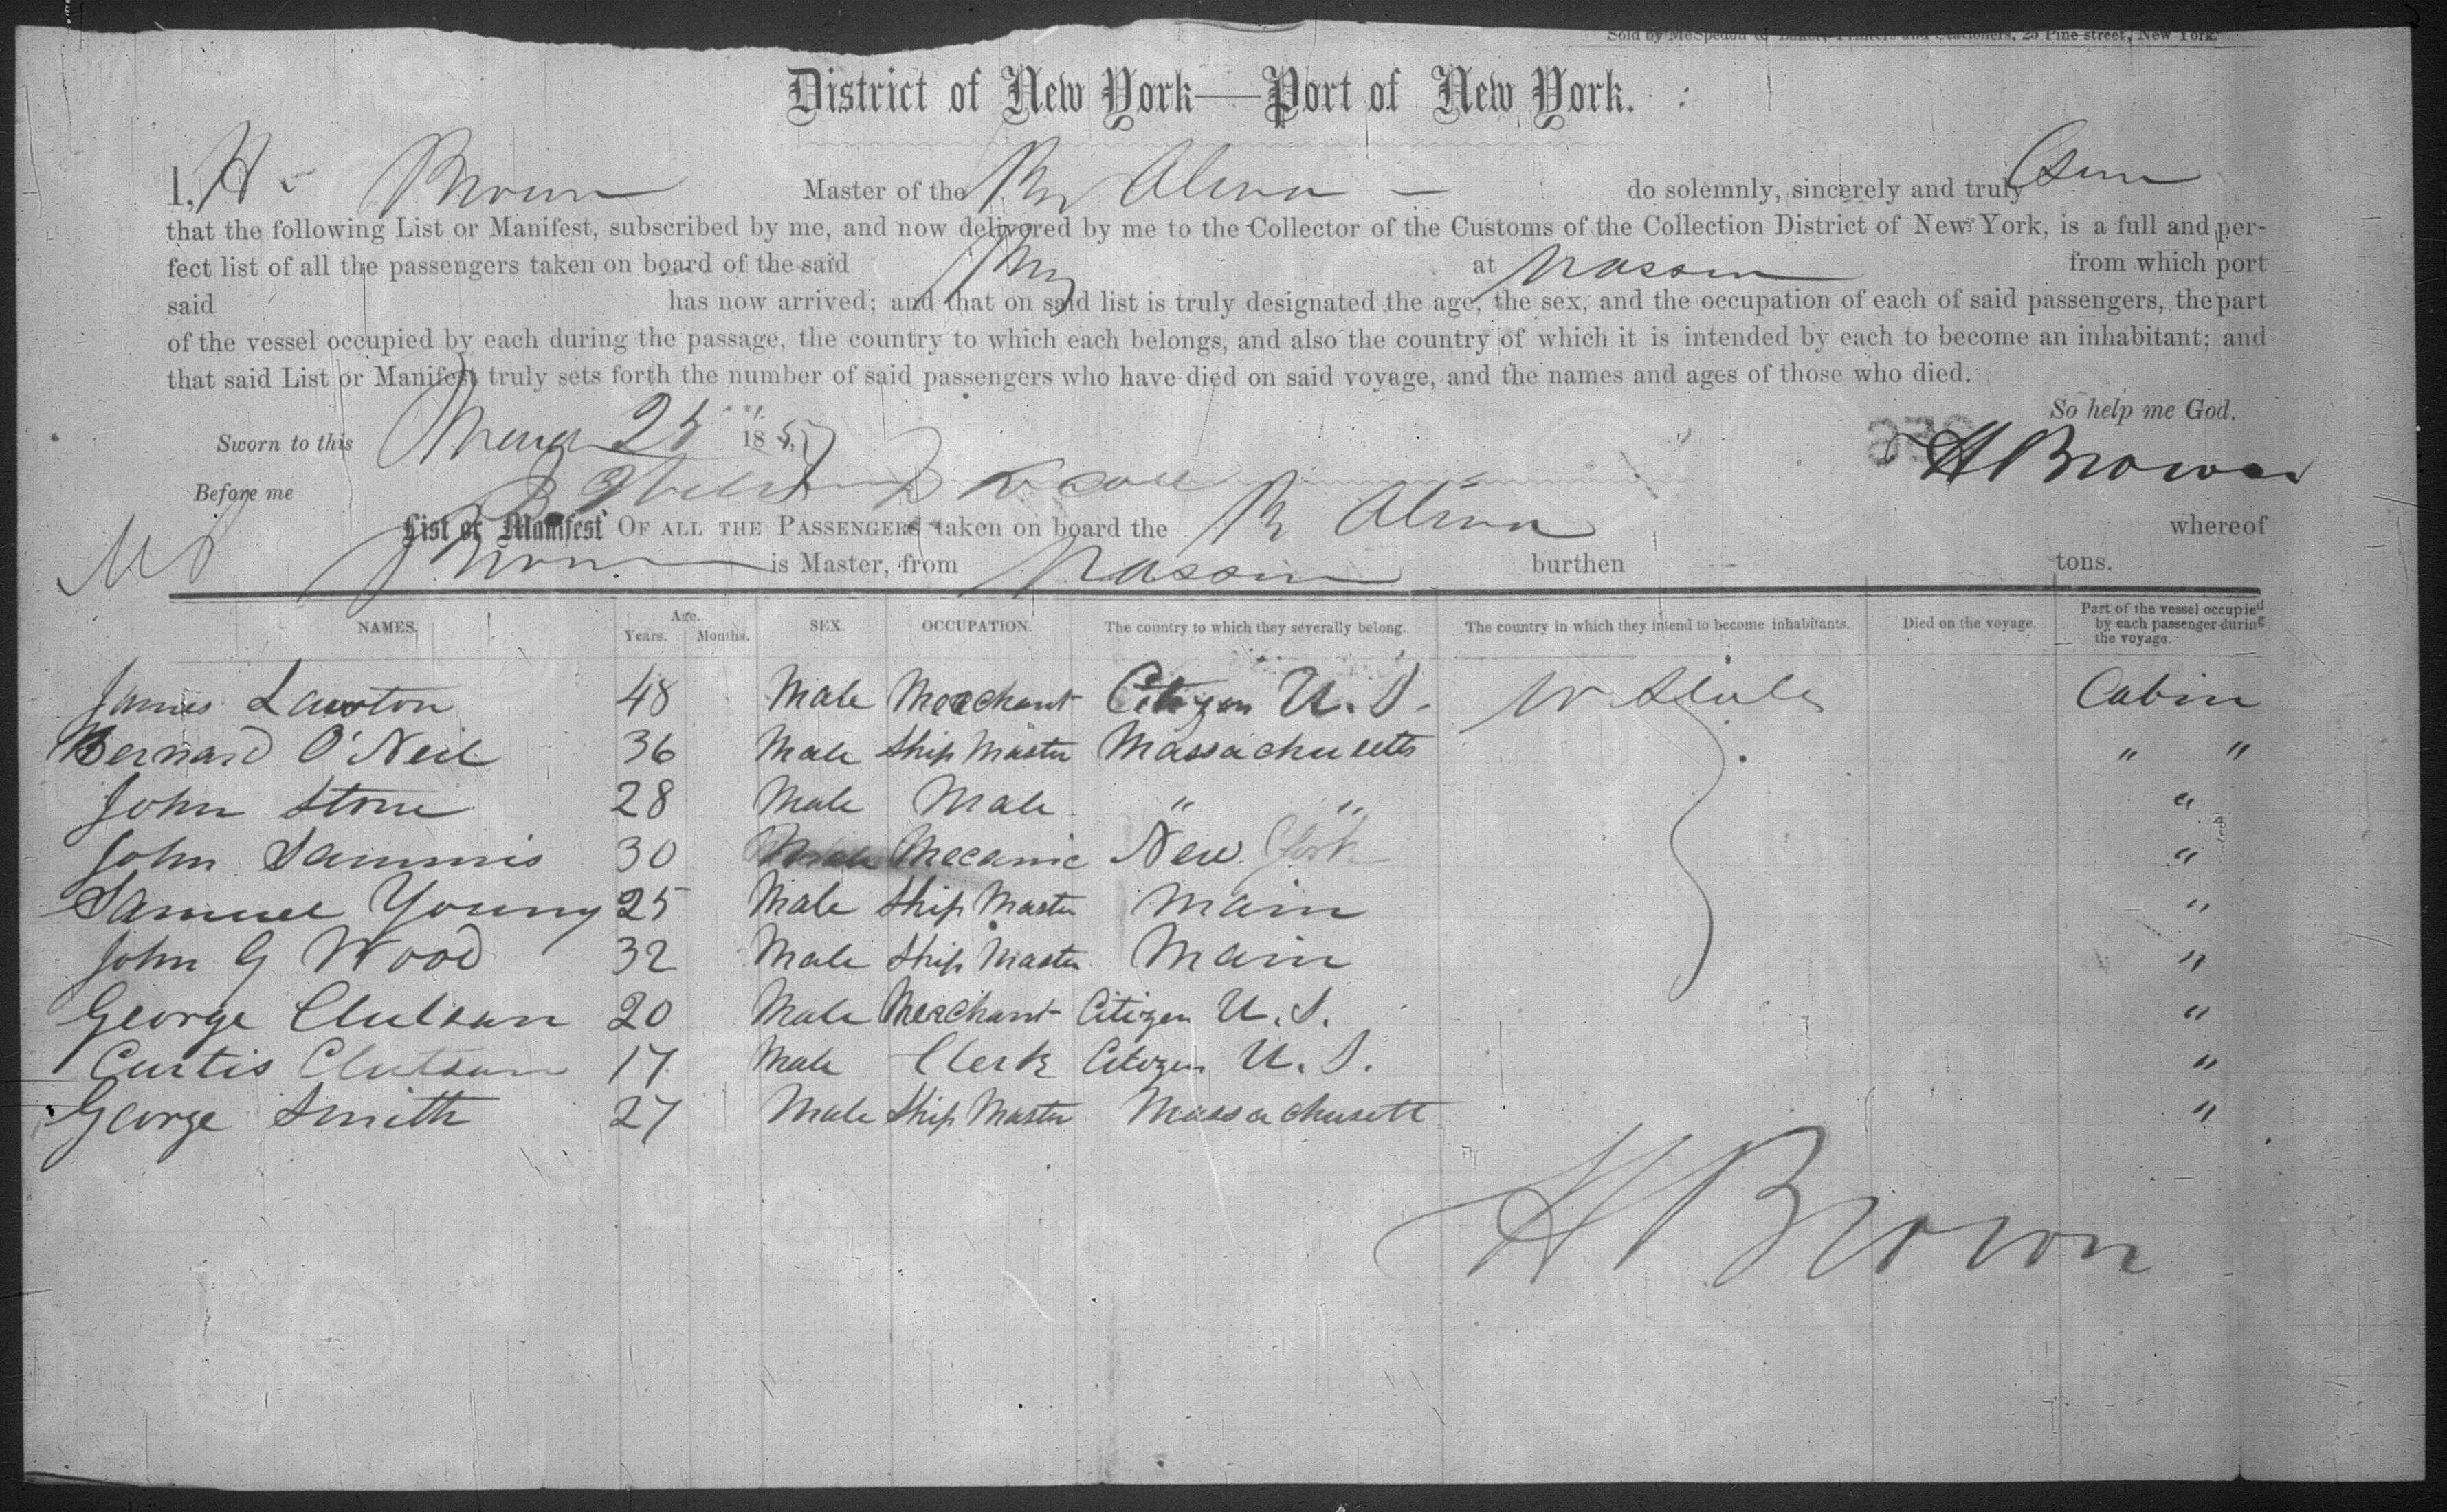 Sold by McSpedon & Baker, Printers and Stationers, 25 Pine street, New York.
District of New York—Port of New York.
I, H Brown Master of the Br Alma do solemnly, sincerely and truly
that the following List or Manifest, subscribed by me, and now delivered by me to the Collector of the Customs of the Collection District of New York, is a full and per-
fect list of all the passengers taken on board of the said Brig at Nassau from which port
said has now arrived; and that on said list is truly designated the age, the sex, and the occupation of each of said passengers, the part
of the vessel occupied by each during the passage, the country to which each belongs, and also the country of which it is intended by each to become an inhabitant; and
that said List or Manifest truly sets forth the number of said passengers who have died on said voyage, and the names and ages of those who died.
So help me God.
Sworn to this March 25 1857 H Brown
Before me
List or Manifest OF ALL THE PASSENGERS taken on board the Br Alma whereof
Brown is Master, from Nassau burthen tons.
NAMES. Age. Years. Months. SEX. OCCUPATION. The country to which they severally belong. The country in which they intend to become inhabitants. Died on the voyage. Part of the vessel occupied by each passenger during the voyage.
James Lawton 48 Male Merchant Citizen U.S. U States Cabin
Bernard O'Neil 36 Male Ship Master Massachusetts " "
John Stone 28 Male Male " " "
John Sammis 30 Male Mecanic New York "
Samuel Young 25 Male Ship Master Main "
John G Wood 32 Male Ship Master Main "
George Clutsam 20 Male Merchant Citizen U.S. "
Curtis Clutsam 17 Male Clerk Citizen U.S. "
George Smith 27 Male Ship Master Massachusett "
H Brown